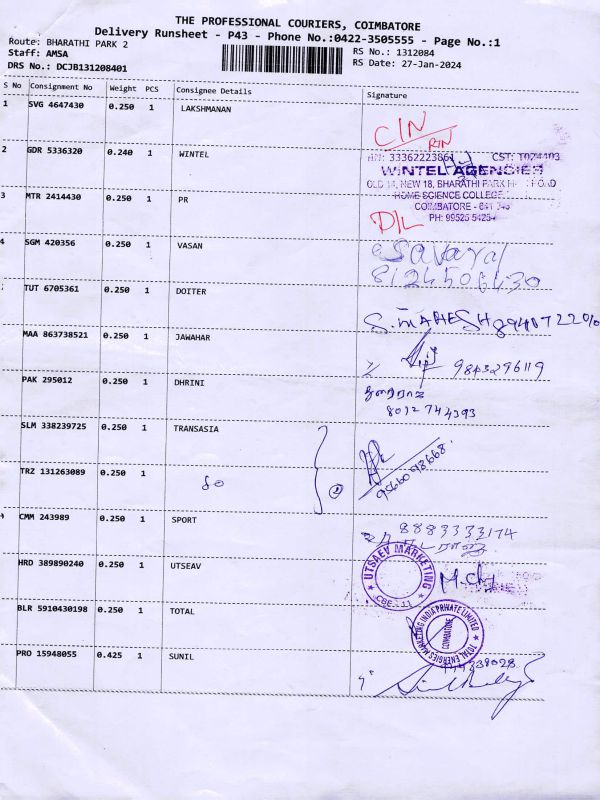 THE PROFESSIONAL COURIERS, COIMBATORE
Delivery Runsheet - P43 - Phone No.:0422-3505555 - Page No.:1
Route: BHARATHI PARK 2
Staff: AMSA
RS No.: 1312084
DRS No.: DCJB131208401
RS Date: 27-Jan-2024
S No Consignment No Weight PCS Consignee Details Signature
1 SVG 4647430 0.250 1 LAKSHMANAN
CIN
RTN
2 GDR 5336320 0.240 1 WINTEL
CST:
WINTEL AGENCIES
OLD 14, NEW 18, BHARATHI PARK ROAD
HOME SCIENCE COLLEGE
COIMBATORE - 641
PH: 99525
3 MTR 2414430 0.250 1 PR
D/L
4 SGM 420356 0.250 1 VASAN
8124506430
TUT 6705361 0.250 1 DOITER
S. MAHESH
MAA 863738521 0.250 1 JAWAHAR
9843296119
PAK 295012 0.250 1 DHRINI
துரைராஜ்
8012744393
SLM 338239725 0.250 1 TRANSASIA
TRZ 131263089 0.250 1 do
2
9566098668
CMM 243989 0.250 1 SPORT
8883333174
HRD 389890240 0.250 1 UTSEAV
UTSAEV MARKETING
CBE
BLR 5910430198 0.250 1 TOTAL
TOTAL ENERGIES MARKETING INDIA PRIVATE LIMITED
COIMBATORE
PRO 15948055 0.425 1 SUNIL